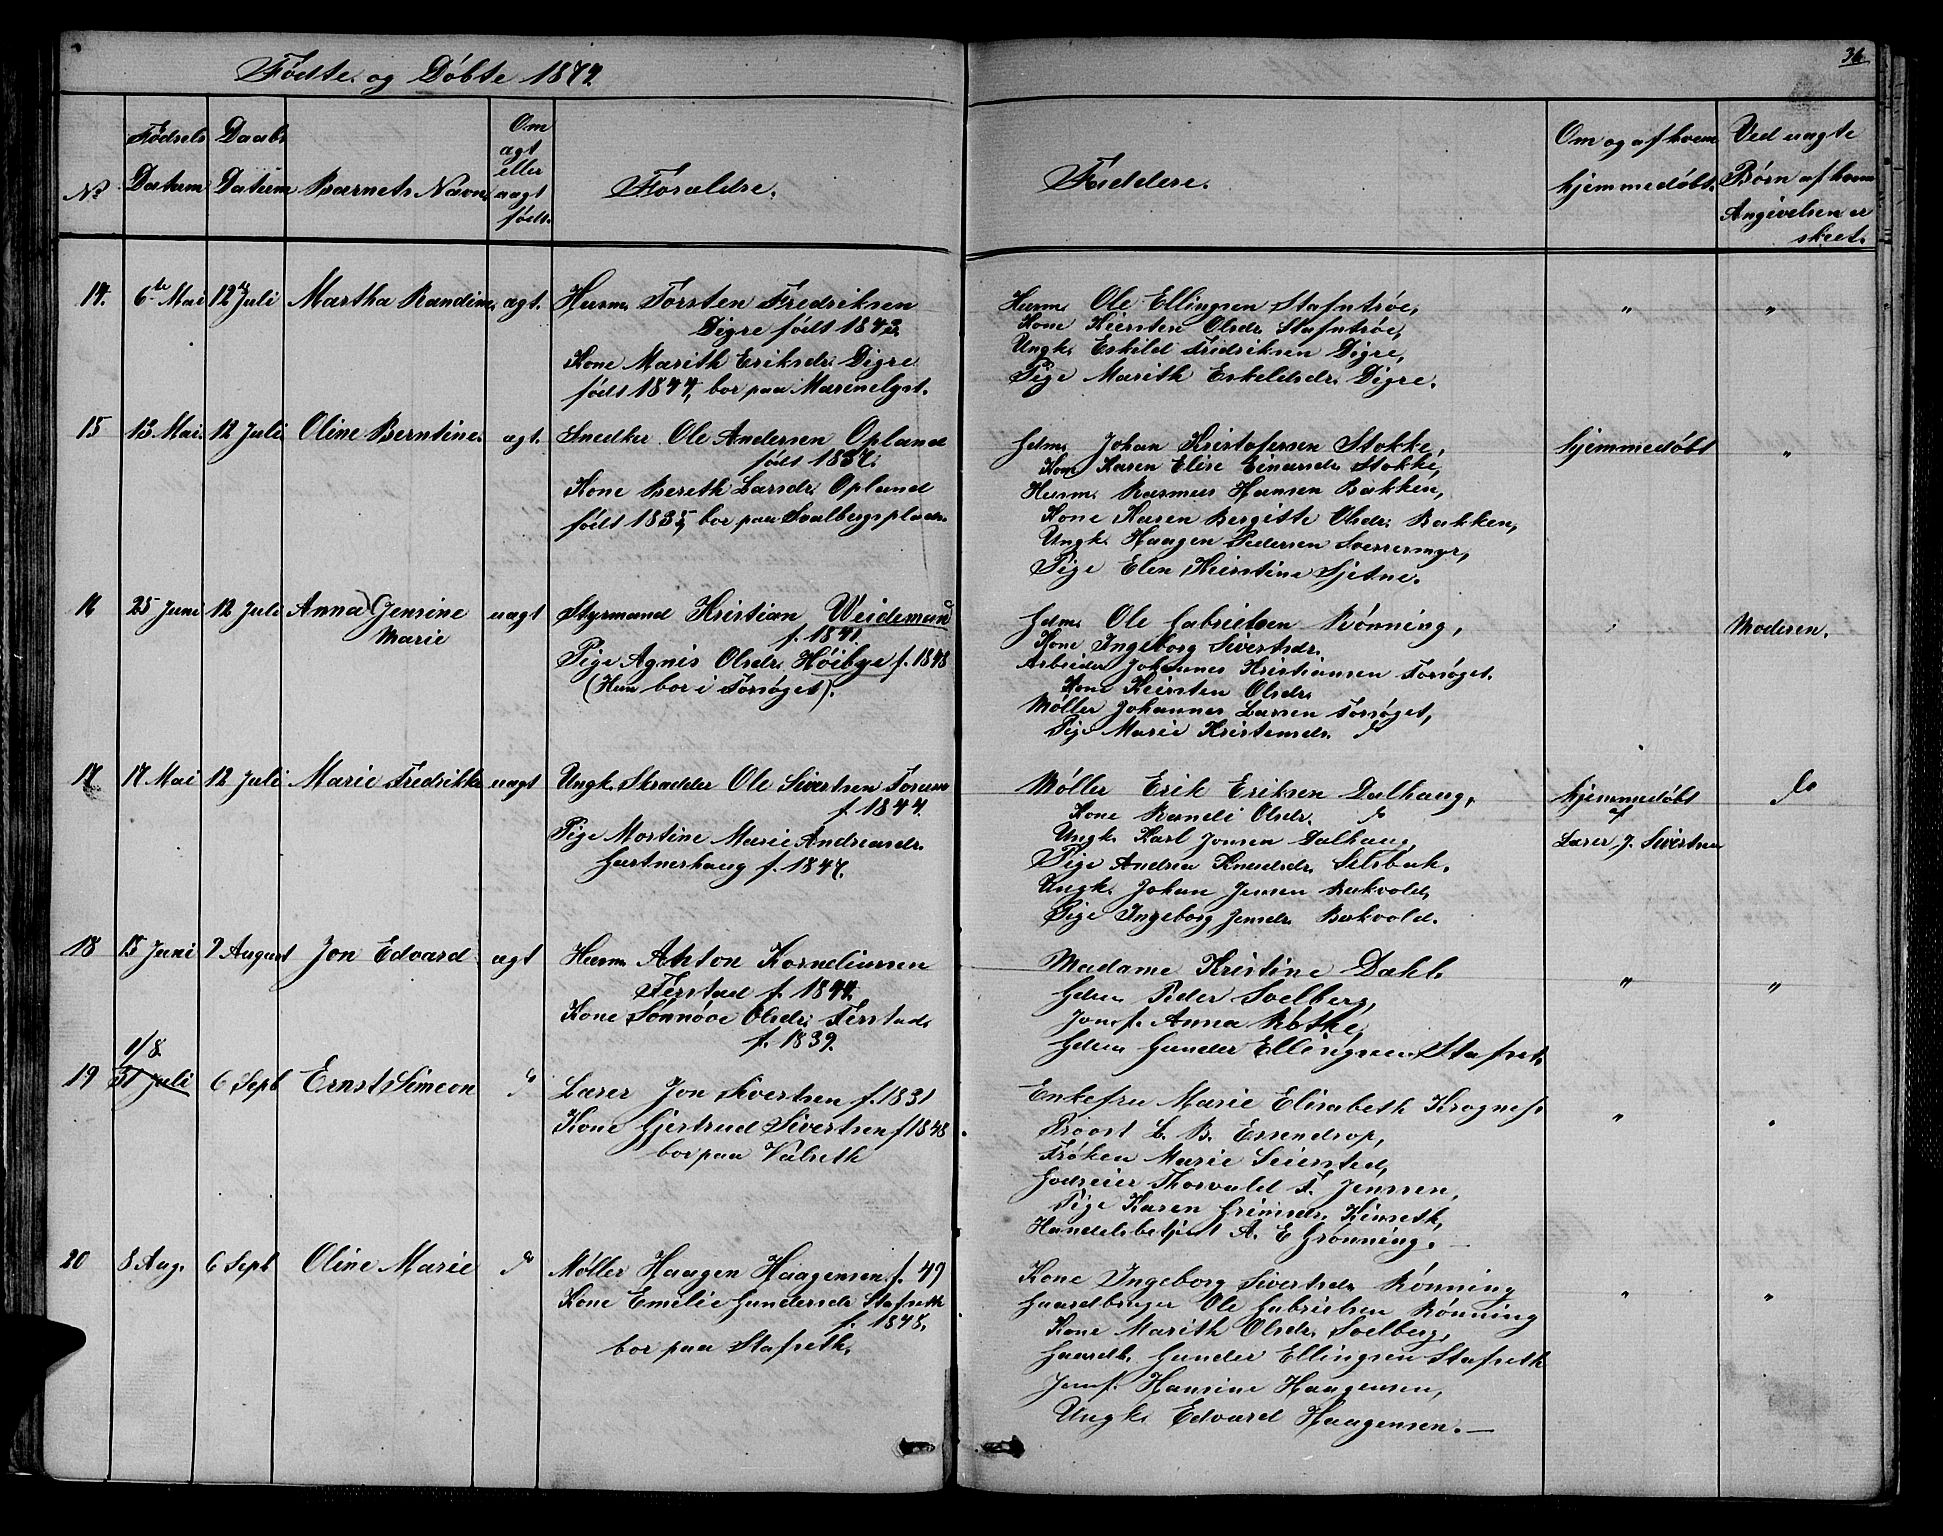 Fødte og Døbte 1874
36
No
Fødsels
Datum
Daabs
Datum
Barnets Navn
Om
ægt
eller
uægt
født.
Forældre.
Faddere.
Om og af hvem
hjemmedøbt.
Ved uægte
Børn af hvem
Angivelsen er
skeet.
14. 6te Mai 12 Juli Martha Randine ægt. Husm. Torsten Fredriksen
Digre født 1843.
Kone Marith Eriksdr. Digre
født 1844, bor paa Marinelyst.
Husm. Ole Ellingsen Stafntrøe,
Kone Kiersten Olsdr. Stafntrøe,
Ungk. Eskild Fredriksen Digre,
Pige Marith Eskeldsdr. Digre.
" "
15 13. Mai. 12 Juli Oline Berntine. ægt. Snedker Ole Andersen Opland
født 1837.
Kone Bereth Larsdr. Opland
født 1835, bor paa Svalbergsplads.
Gdm. Johan Kristofersen Stokke,
Kone Karen Elise Einarsdr. Stokke,
Husm. Rasmus Hansen Bakken,
Kone Karen Bergitte Olsdr. Bakken,
Ungk. Haagen Pedersen
Pige Elen Kierstine Sjetne.
hjemmedøbt "
16 25 Juni 12 Juli Anna Jensine
Marie
uægt Styrmand Kristian Weidemann
f. 1841.
Pige Agnis Olsdr. Høibye f. 1848
(Hun bor i Forsøget).
Gdm. Ole Gabrielsen Rønning,
Kone Ingeborg Sivertsdr.
Arbeider Johannes Kristiansen Forsøget.
Kone Kiersten Olsdr.
Møller Johannes Larsen Forsøget,
Pige Marie Kristensdr. do
Moderen.
17 17 Mai 12 Juli Marie Fredrikke uægt Ungk. Skrædder Ole Sivertsen
f. 1844.
Pige Mortine Marie Andreasdr.
Gartnerhaug f. 1847.
Møller Erik Eriksen Dalhaug,
Kone Randi Olsdr. do
Ungk. Karl Jonsen Dalhaug,
Pige Andrea Knudsdr. Selsbak.
Ungk. Johan Jensen Bækvold,
Pige Ingeborg Jensdr. Bækvold.
hjemmedøbt
af
Lærer J. Sivertsen
do
18 15 Juni 9 August Jon Edvard ægt Husm. Anton Korneliussen
Ferstad f. 1844.
Kone Sønnøve Olsdr. Ferstad
f. 1839.
Madame Kristine Dahl
Gdm. Peder Solberg,
Jomf. Anna Røthe,
Gdm. Gunder Ellingsen Stafset.
" "
1/8
19 31 Juli 6 Sept Ernst Simeon do Lærer Jon Sivertsen f. 1831
Kone Gjertrud Sivertsen f 1848
bor paa Valseth
Enkefru Marie Elisabeth Krognes.
Provst L. B. Essendrop,
Frøken Marie Seiersted,
Godseier Thorvald F. Jenssen,
Pige Karen Grimsdr. Kimseth,
Handelsbetjent A. E Grønning. —
"
20 8 Aug. 6 Sept Oline Marie do Møller Haagen Haagensen f. 49
Kone Emelie Gundersdr. Stafseth
f. 1848.
bor paa Stafseth.
Kone Ingeborg Sivertsdr. Rønning
Gaardbruger Ole Gabrielsen Rønning
Kone Marith Olsdr. Solberg,
Gaardb. Gunder Ellingsen Stafseth
Jomf. Hansine Haagensen,
Ungk. Edvard Haagensen. —
" "